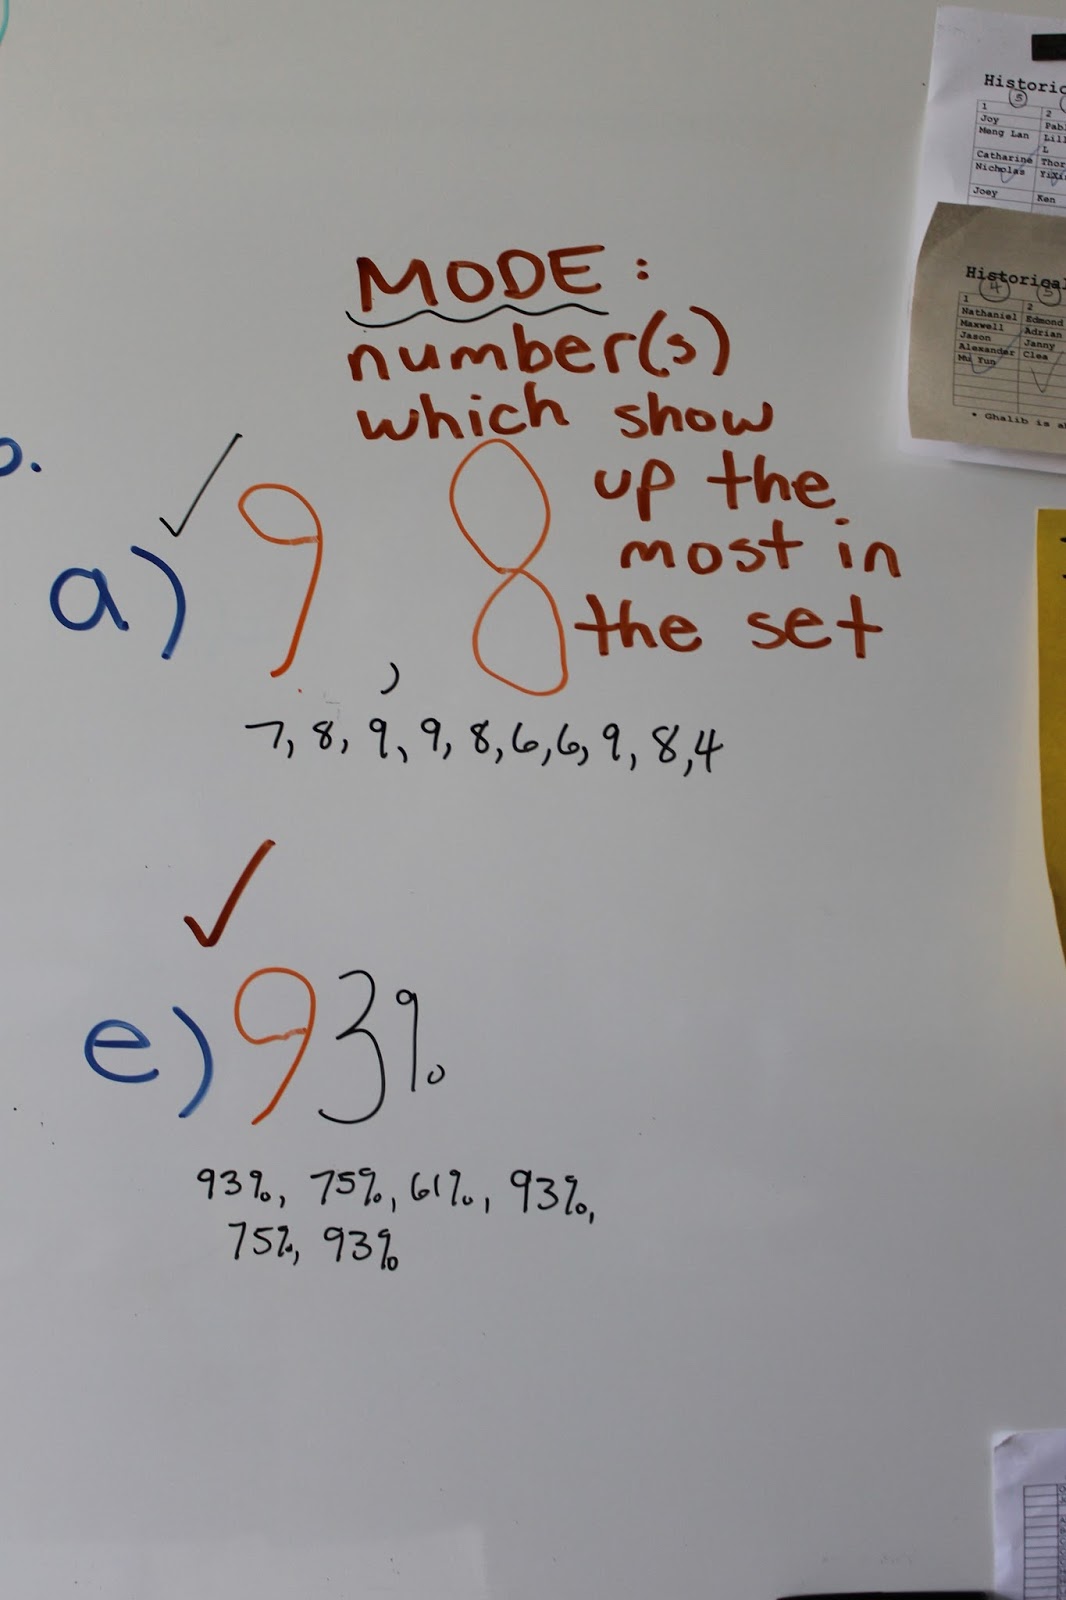 MODE:
number(s)
which show
up the
most in
the set
a) 9, 8
7, 8, 9, 9, 8, 6, 6, 9, 8, 4
e) 93%
93%, 75%, 61%, 93%,
75%, 93%
Historic
5
1 2
Joy
Meng Lan
L
Catharine
Nicholas
Joey Ken
Historical
4 5
1 2
Nathaniel Edmond
Maxwell Adrian
Jason Janny
Alexander Clea
Mu Yun
• Ghalib is